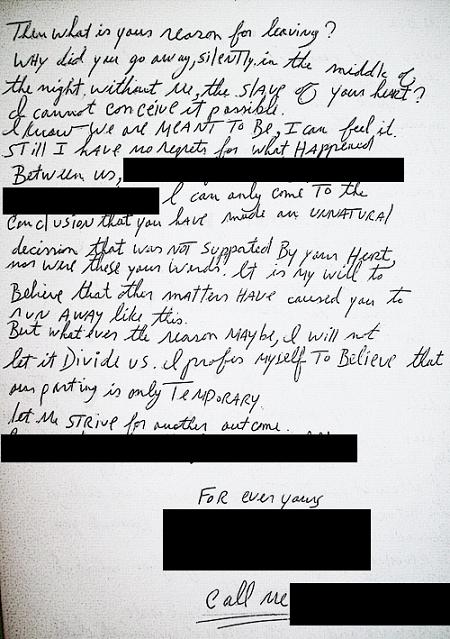 Then what is your reason for leaving?
Why did you go away, silently, in the middle of
the night without me, the slave of your heart?
I cannot conceive it possible.
I know we are MEANT TO Be, I can feel it.
Still I have no regrets for what Happened
Between us,
I can only come To the
Conclusion that you HAVE made an UNNATURAl
decision that was NOT supported By your Heart,
nor were these your words. It is my will to
Believe that other matters HAVE caused you to
run AWAY like this.
But what ever the reason MAybe, I will not
let it Divide us. I profes myself To Believe that
our parting is only TemPoRARY.
let Me STRIVE for another outcome.
FoR ever yours
Call me